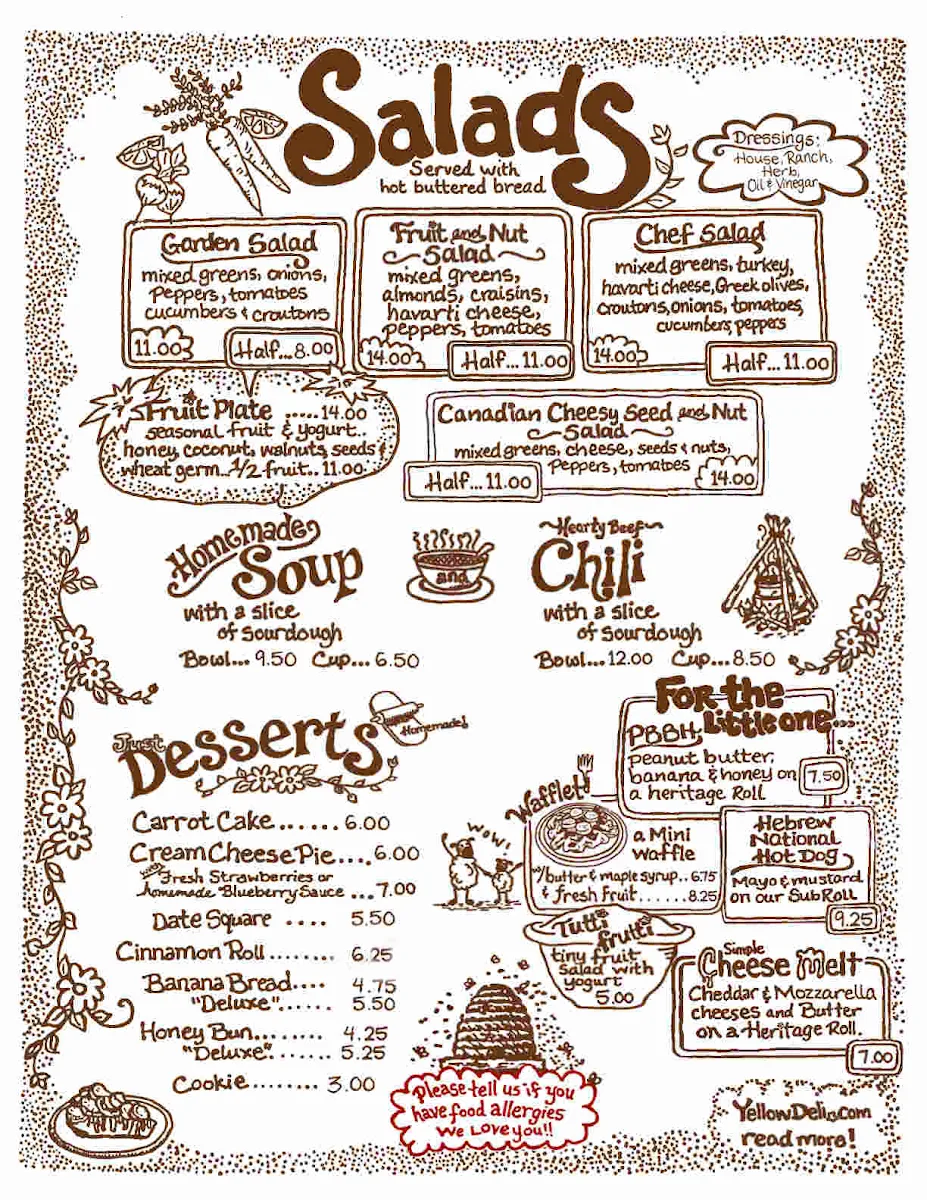 Salads
Served with
hot buttered bread
Dressings:
House, Ranch,
Herb,
Oil & Vinegar
Garden Salad
mixed greens, onions,
Peppers, tomatoes
cucumbers & croutons
11.00
Half...8.00
Fruit and Nut
Salad
mixed greens,
almonds, craisins,
havarti cheese,
peppers, tomatoes
14.00
Half...11.00
Chef Salad
mixed greens, turkey,
havarti cheese, Greek olives,
croutons, onions, tomatoes,
cucumbers, peppers
14.00
Half...11.00
Fruit Plate .....14.00
seasonal fruit & yogurt..
honey, coconut, walnuts, seeds &
wheat germ...1/2 fruit..11.00
Canadian Cheesy Seed and Nut
Salad
mixed greens, cheese, seeds & nuts,
Peppers, tomatoes
Half...11.00
14.00
Homemade
Soup
with a slice
of sourdough
Bowl...9.50 Cup...6.50
and
Hearty Beef
Chili
with a slice
of sourdough
Bowl...12.00 Cup...8.50
Just
Desserts
Homemade!
Carrot Cake......6.00
Cream Cheese Pie....6.00
with Fresh Strawberries or
homemade Blueberry Sauce ...7.00
Date Square .... 5.50
Cinnamon Roll........ 6.25
Banana Bread.... 4.75
"Deluxe"..... 5.50
Honey Bun........ 4.25
"Deluxe"....... 5.25
Cookie........ 3.00
For the
Little one...
PBBH
peanut butter,
banana & honey on
a heritage Roll
7.50
Wafflet!
a Mini
Waffle
w/butter & maple syrup..6.75
& fresh Fruit......8.25
Wow!
Hebrew
National
Hot Dog
Mayo & mustard
on our Sub Roll
9.25
Tutti
frutti
tiny fruit
salad with
yogurt
5.00
Simple
Cheese Melt
Cheddar & Mozzarella
cheeses and Butter
on a Heritage Roll.
7.00
Please tell us if you
have food allergies
We Love you!!
YellowDeli.com
read more!